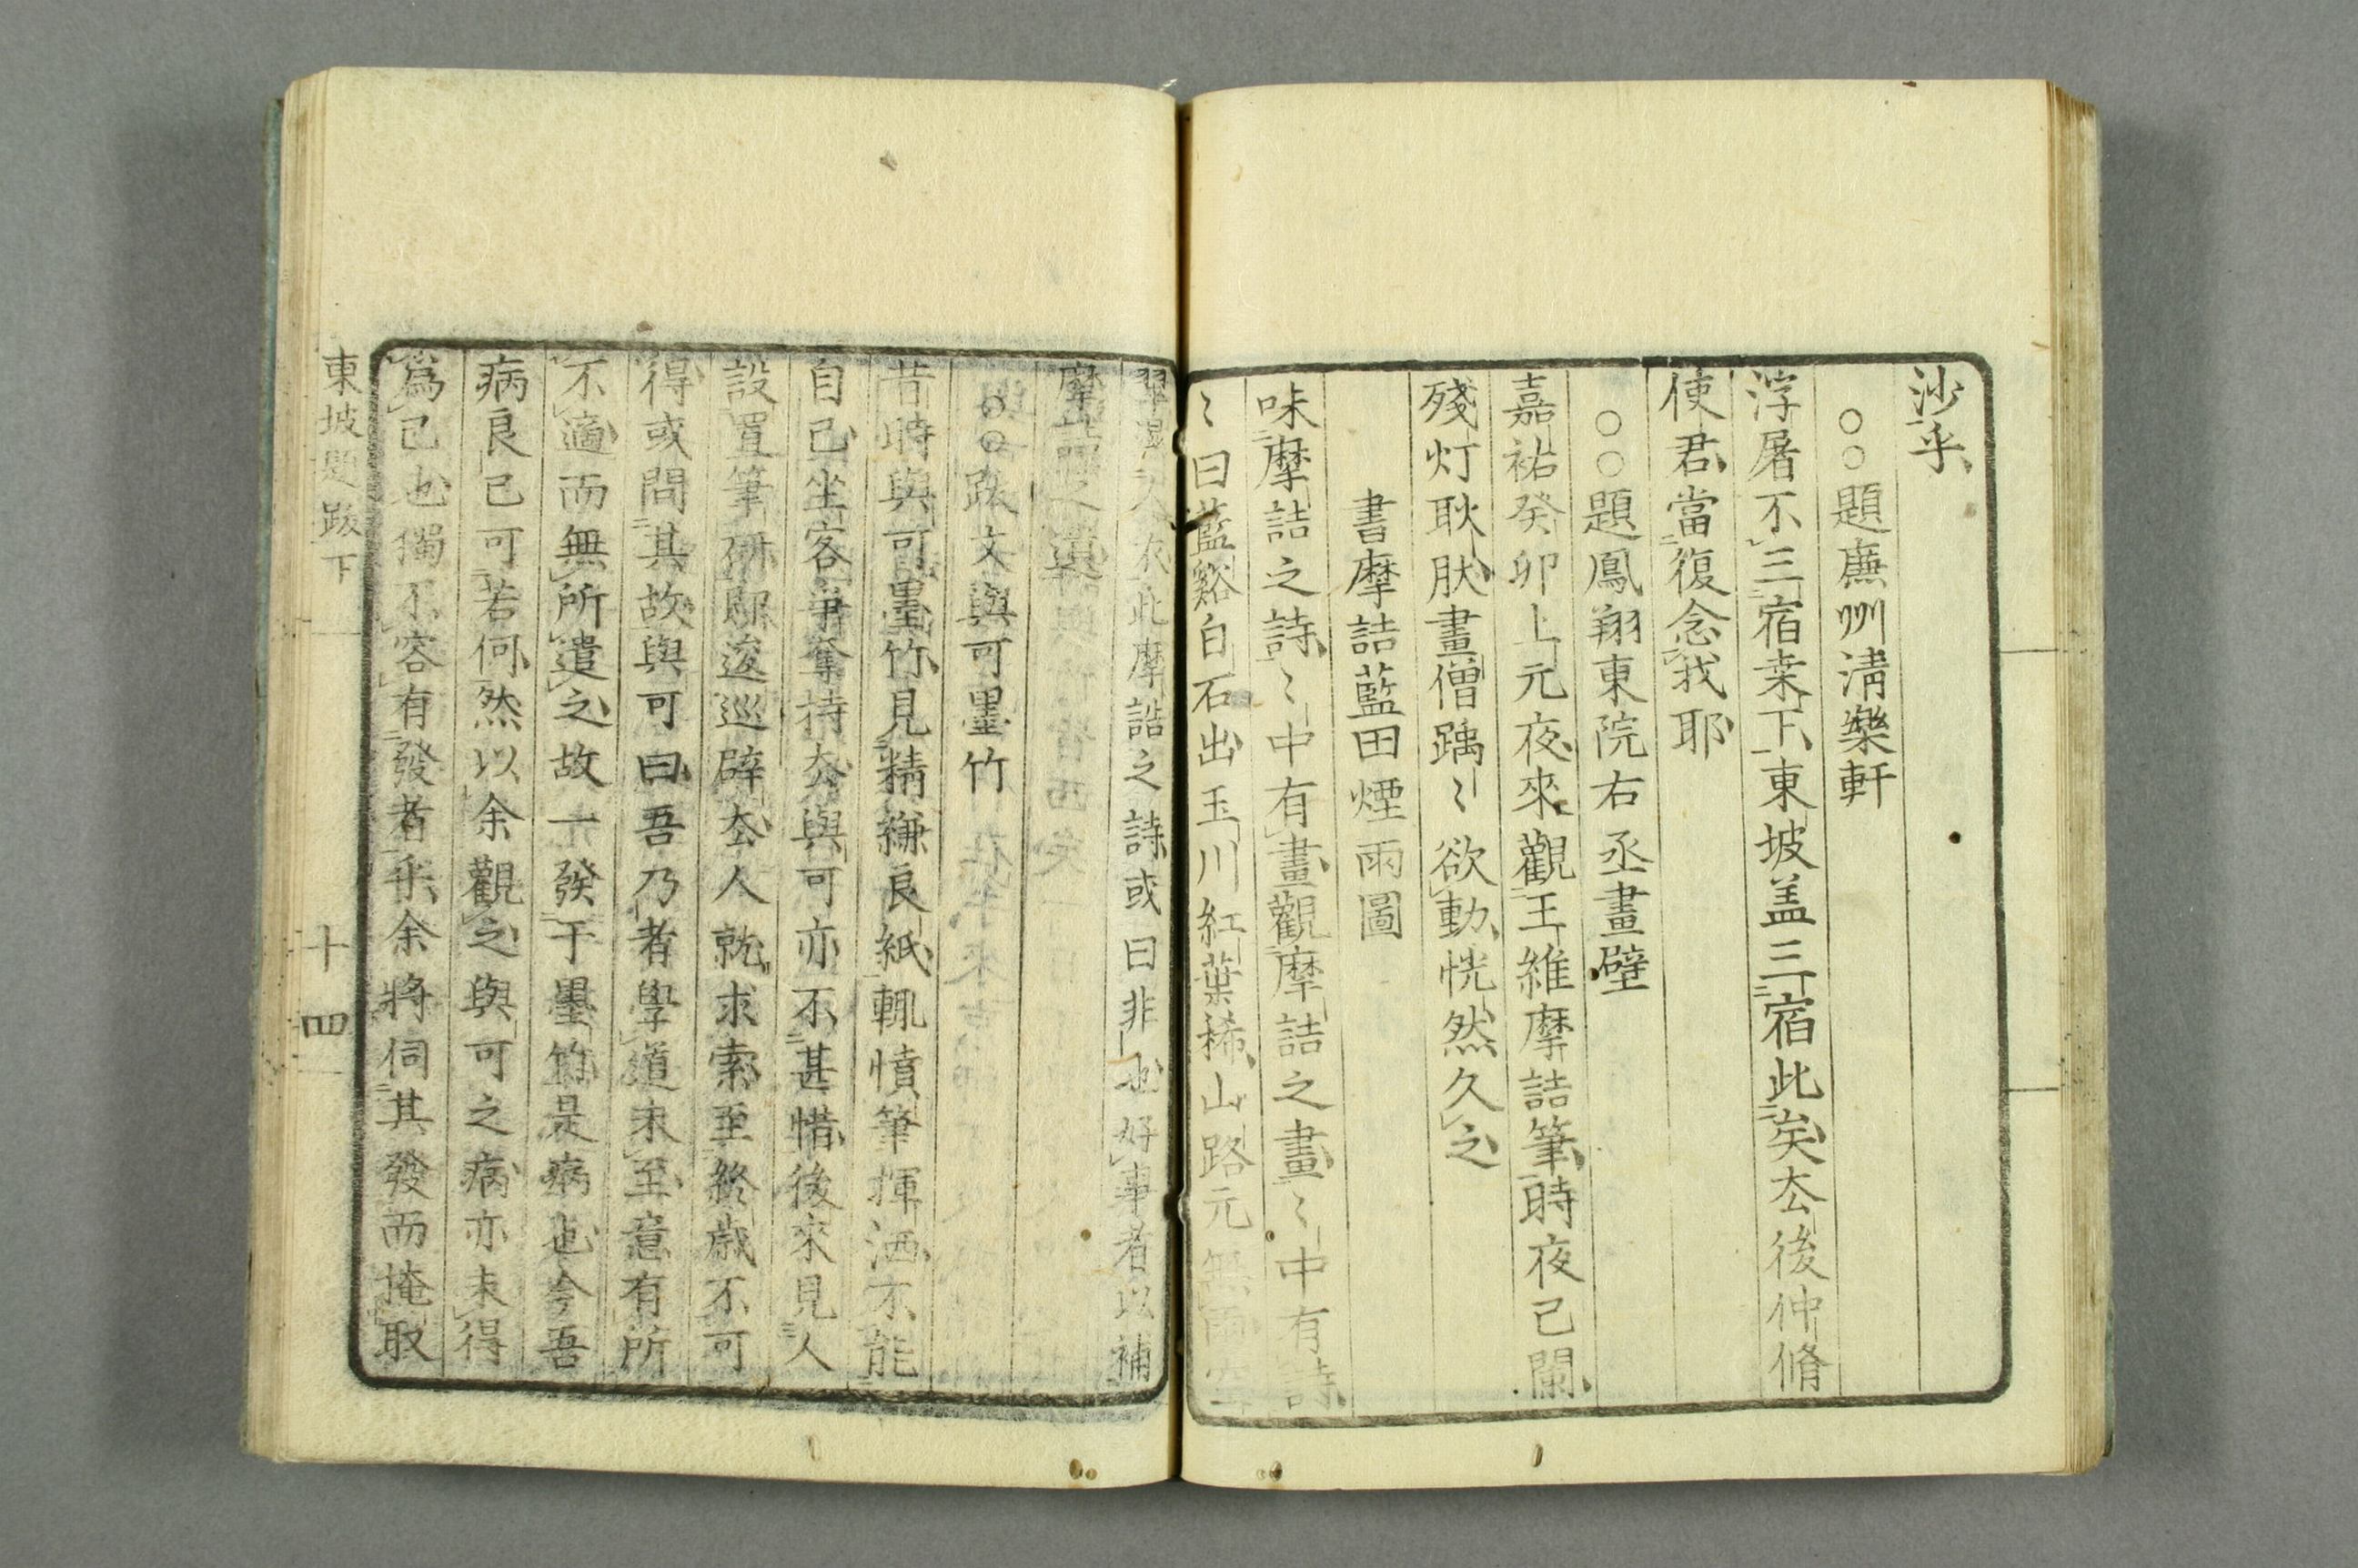 沙乎
○○題廉州清樂軒
浮屠不三宿桒下東坡盖三宿此矣厺後仲脩
使君當復念我耶
○○題鳳翔東院右丞畫壁
嘉祐癸卯上元夜來觀王維摩詰筆時夜已闌
殘灯耿肰畫僧踽〻欲動恍然久之
書摩詰藍田煙雨圖
味摩詰之詩〻中有畫觀摩詰之畫〻中有詩
〻曰藍谿白石出玉川紅葉稀山路元無雨空
翠濕人衣此摩詰之詩或曰非也好事者以補
摩詰之遺
○○跋文與可墨竹
昔時與可墨竹見精縑良紙輒憤筆揮洒不能
自已坐客爭奪持厺與可亦不甚惜後來見人
設置筆研即逡巡辟厺人就求索至終歲不可
得或問其故與可曰吾乃者學道未至意有所
不適而無所遣之故一發于墨竹是病也今吾
病良已可若何然以余觀之與可之病亦未得
爲已也獨不容有發者乎余將伺其發而掩取
東坡題跋下
十四